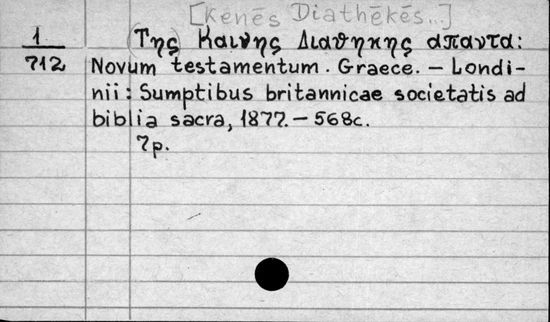 [Kenēs Diathēkēs...]
1
712
(Της) Καινης Διαθηκης απαντα:
Novum testamentum. Graece. — Londi-
nii: Sumptibus britannicae societatis ad
biblia sacra, 1877. — 568c.
7p.